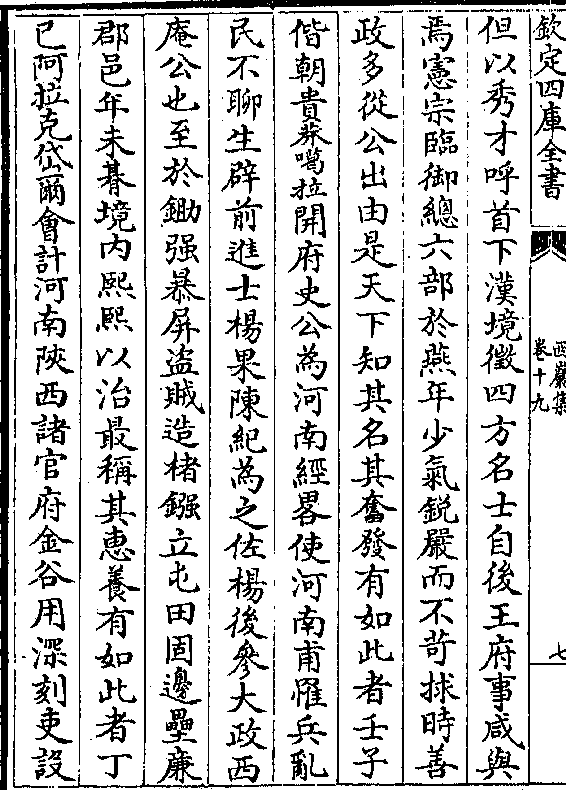 欽定四庫全書
西巖集
卷十九
七
但以秀才呼首下漢境徵四方名士自後王府事咸與
焉憲宗臨御總六部於燕年少氣銳嚴而不苛捄時善
政多從公出由是天下知其名其奮發有如此者壬子
偕朝貴莽噶拉開府史公為河南經畧使河南甫罹兵亂
民不聊生辟前進士楊果陳紀為之佐楊後參大政西
庵公也至於鋤强暴屏盜賊造楮鏹立屯田固邊壘廉
郡邑年未朞境内熙熙以治最稱其恵養有如此者丁
已阿拉克岱爾會計河南陜西諸官府金谷用深刻吏設